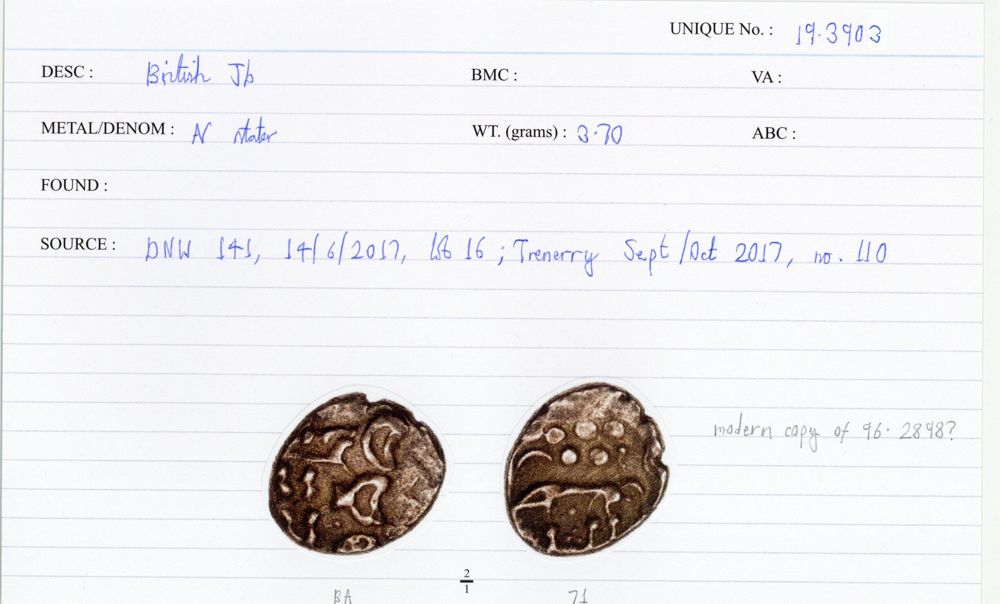 UNIQUE No. : 19.3903
DESC : British Jb BMC : VA :
METAL/DENOM : AV stater WT. (grams) : 3.70 ABC :
FOUND :
SOURCE : DNW 141, 14/6/2017, lot 16 ; Trenerry Sept/Oct 2017, no. 110
modern copy of 96.2898?
2
1
BA 71